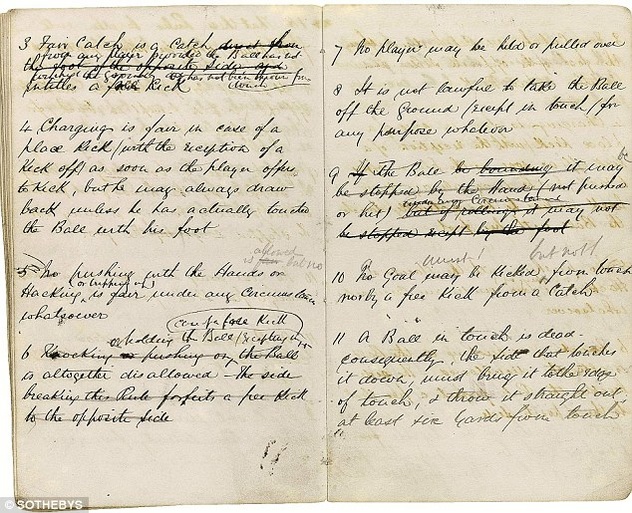 3 Fair Catch is a Catch direct from
from any player provided the Ball has not
the foot of the opposite side and
touched the ground
has not been thrown from
touch
entitles a free Kick
4 Charging is fair in case of a
place Kick (with the exception of a
Kick off) as soon as the player offers
to Kick, but he may always draw
back unless he has actually touched
the Ball with his foot
allowed
is fair but no
5 No pushing with the Hands or
or tripping up
Hacking is fair under any Circumstances
whatsoever
free Kick
or holding the Ball (excepting in
6 Knocking or pushing on the Ball
is altogether disallowed – The side
breaking this Rule forfeits a free Kick
to the opposite side
7 No player may be held or pulled over
8 It is not lawful to take the Ball
off the Ground (except in touch) for
any purpose whatever
be
9 If The Ball be bounding it may
be stopped by the Hand (not pushed
under any Circumstances
or hit) but if rolling it may not
be stopped except by the foot
must
but not
10 No Goal may be Kicked from touch
nor by a free Kick from a Catch
11 A Ball in touch is dead
consequently the side that touches
it down, must bring it to the edge
of touch, & throw it straight out
at least six yards from touch
© SOTHEBYS